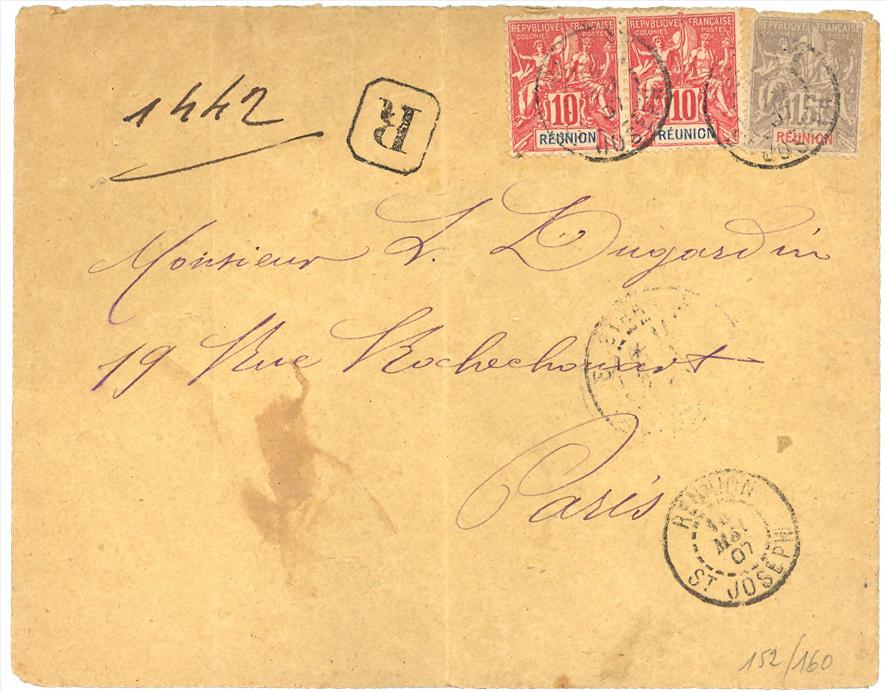 REPUBLIQUE FRANÇAISE
COLONIES POSTES
10
RÉUNION
REPUBLIQUE FRANÇAISE
COLONIES POSTES
10
RÉUNION
REPUBLIQUE FRANÇAISE
COLONIES POSTES
15
RÉUNION
1442
R
Monsieur L. Dugardin
19 Rue Rochechouart
Paris
REUNION
MAI
07
ST JOSEPH
152/160